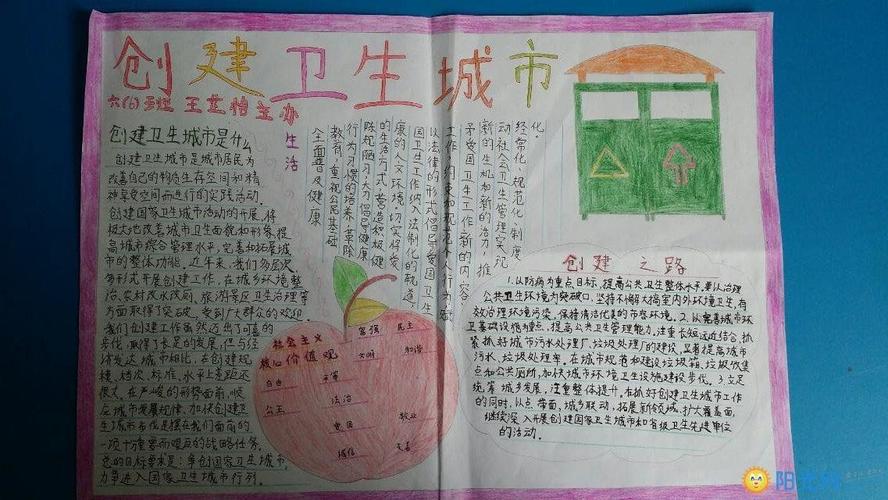 创建卫生城市
六(6)班 王艾怡主办
创建卫生城市是什么
创建卫生城市是城市居民为
改善自己的物质生存空间和精
神享受空间而进行的实践活动.
创建国家卫生城市活动的开展,将
极大地改善城市卫生面貌和形象,提
高城市综合管理水平,完善和拓展城
市的整体功能.近年来,我们多层次
多形式开展创建工作,在城乡环境整
治,农村改水改厕,旅游景区卫生治理等
方面取得了突破,受到广大群众的欢迎.
我们创建工作虽然迈出了可喜的
步伐,取得了长足的发展,但与经
济发达城市相比,在创建规
模,档次,标准,水平上差距还
很大,在严峻的形势面前,顺
应城市发展规律,加快创建卫
生城市步伐是摆在我们面前的
一项十分重要而艰巨的战略任务.
总的目标要求是:争创国家卫生城市,
力争进入国家卫生城市行列.
生活
化.
经常化、规范化、制度
动社会卫生管理实现
新的生机和新的活力,推
予爱国卫生工作新的内容,
工作,约束和规范个人行为,赋
以法律的形式倡导爱国卫生
国卫生工作纳入法制化的轨道,
康的人文环境.切实将爱
的生活方式,营造积极健
陈规陋习,大力倡导健康
行为习惯的培养,革除
教育,重视公民基础
全面普及健康
社会主义
核心价值观
富强 民主
文明 和谐
自由 平等
公正 法治
爱国 敬业
诚信 友善
创建之路
1.以防病为重点目标,提高公共卫生整体水平,要以治理
公共卫生环境为突破口,坚持不懈大搞室内外环境卫生,有
效治理环境污染,保持清洁优美的市容环境.2.以完善城市环
卫基础设施为重点,提高公共卫生管理能力,注重长短远近结合,抓
紧抓好城市污水处理厂、垃圾处理厂的建设,显著提高城市
污水,垃圾处理率,在城市规范和建设垃圾箱,垃圾收集
点和公共厕所,加快城市环境卫生设施建设步伐.3.立足
统筹城乡发展,注重整体提升,在抓好创建卫生城市工作
的同时,以点带面,城乡联动,拓展新领域,扩大覆盖面,
继续深入开展创建国家卫生城市和省级卫生先进单位
的活动.